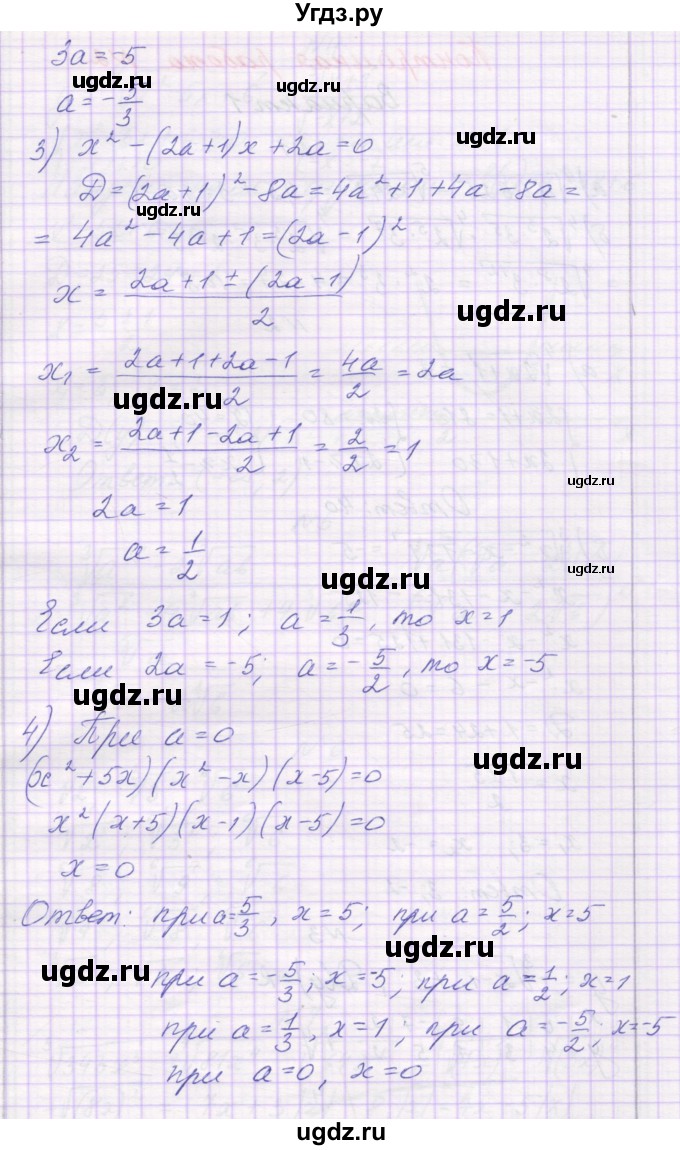 Угдз.ру
3a = -5
ugdz.ru
a = -5/3
3) x² - (2a+1)x + 2a = 0
ugdz.ru
Д = (2a+1)² - 8a = 4a² + 1 + 4a - 8a =
ugdz.ru
= 4a² - 4a + 1 = (2a-1)²
x = (2a+1 ± (2a-1))/2
ugdz.ru
x₁ = (2a+1+2a-1)/2 = 4a/2 = 2a
ugdz.ru
x₂ = (2a+1-2a+1)/2 = 2/2 = 1
ugdz.ru
2a = 1
a = 1/2
ugdz.ru
ugdz.ru
Если 3a = 1; a = 1/3, то x = 1
Если 2a = -5; a = -5/2, то x = -5
ugdz.ru
4) При a = 0
ugdz.ru
(x² + 5x)(x² - x)(x-5) = 0
x²(x+5)(x-1)(x-5) = 0
x = 0
Ответ: при a = 5/3, x = 5; при a = 5/2; x = 5
ugdz.ru
ugdz.ru
при a = -5/3; x = -5; при a = 1/2; x = 1
при a = 1/3, x = 1; при a = -5/2; x = -5
при a = 0, x = 0
ugdz.ru
ugdz.ru
ugdz.ru